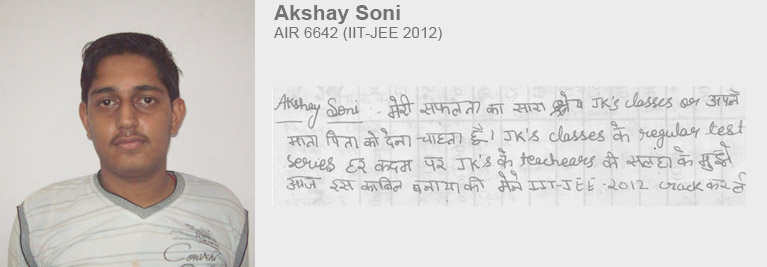 Akshay Soni
AIR 6642 (IIT-JEE 2012)
Akshay Soni : मेरी सफलता का सारा श्रेय JK's classes or अपने
माता पिता को देना चाहता हूँ। JK's classes के regular test
series हर कदम पर JK's के teachears की सलहा के मुझे
आज इस काबिल बनाया की मैने IIT-JEE-2012 crack कर ली
Conver